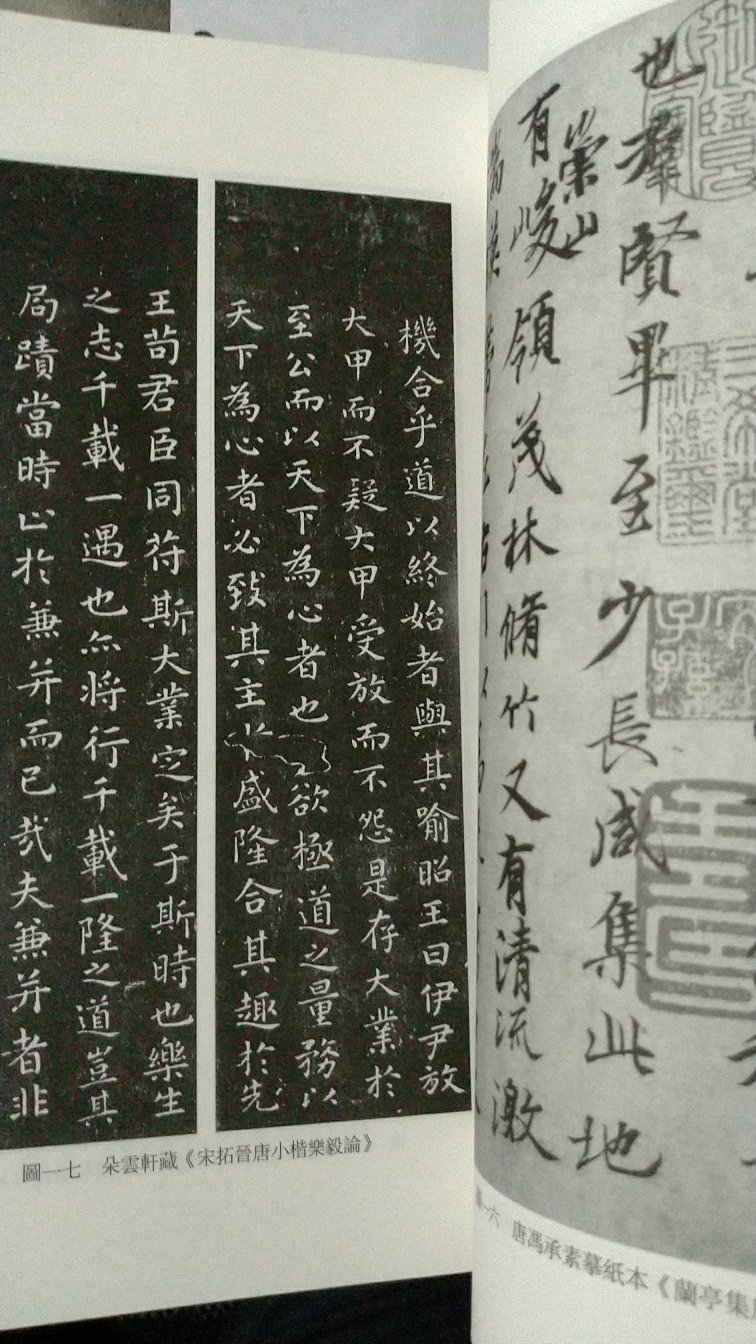 也羣賢畢至少長咸集此地
有崇山
峻領茂林脩竹又有清流激
唐馮承素摹紙本《蘭亭集
機合乎道以終始者與其喻昭王曰伊尹放
大甲而不疑大甲受放而不怨是存大業於
至公而以天下為心者也欲極道之量務以
天下為心者必致其主於盛隆合其趣於先
王苟君臣同符斯大業定矣于斯時也樂生
之志千載一遇也亦將行千載一隆之道豈其
局蹟當時止於兼并而已哉夫兼并者非
圖一七 朵雲軒藏《宋拓晉唐小楷樂毅論》